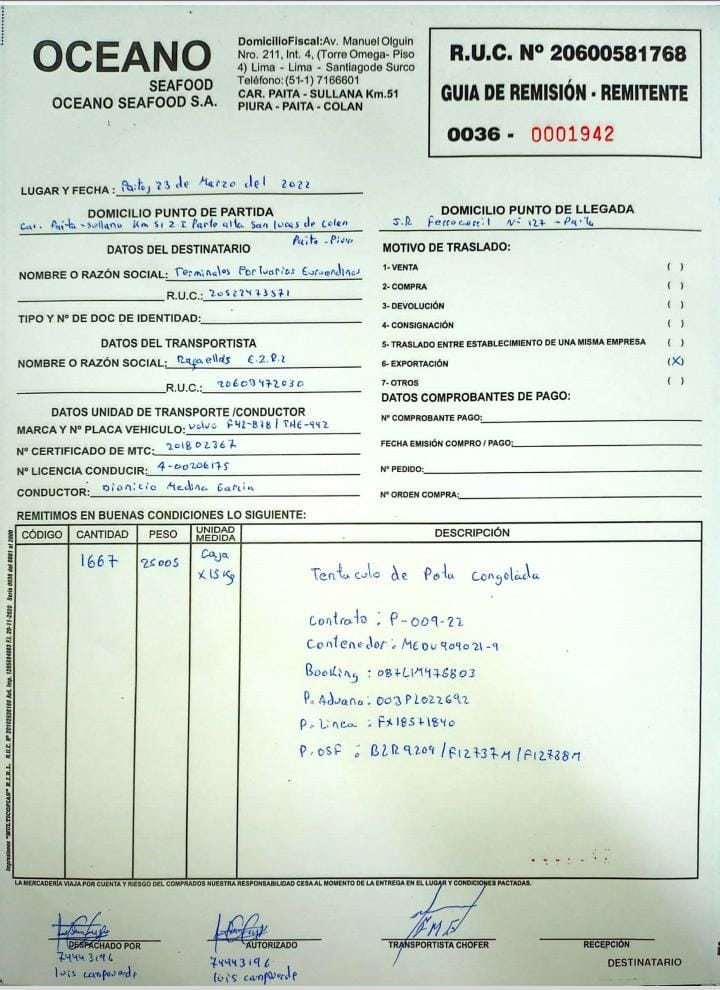 OCEANO
SEAFOOD
OCEANO SEAFOOD S.A.
DomicilioFiscal:Av. Manuel Olguin
Nro. 211, Int. 4, (Torre Omega- Piso
4) Lima - Lima - Santiagode Surco
Teléfono:(51-1) 7166601
CAR. PAITA - SULLANA Km.51
PIURA - PAITA - COLAN
R.U.C. Nº 20600581768
GUIA DE REMISIÓN - REMITENTE
0036 - 0001942
LUGAR Y FECHA : Paita, 23 de Marzo del 2022
DOMICILIO PUNTO DE PARTIDA
Car. Paita - sullana Km 51 2 I Parte alta San Lucas de Colan
Paita - Piura
DOMICILIO PUNTO DE LLEGADA
J.R Ferrocarril Nº 127 - Paita
DATOS DEL DESTINATARIO
NOMBRE O RAZÓN SOCIAL: Terminales Portuarios Euroandinos
R.U.C.: 20522473571
TIPO Y Nº DE DOC DE IDENTIDAD:
DATOS DEL TRANSPORTISTA
NOMBRE O RAZÓN SOCIAL: E.I.R.L
R.U.C.:
DATOS UNIDAD DE TRANSPORTE /CONDUCTOR
MARCA Y Nº PLACA VEHICULO: Volvo
Nº CERTIFICADO DE MTC: 201802367
Nº LICENCIA CONDUCIR: 4-00206175
CONDUCTOR: Dionicio Medina Garcia
MOTIVO DE TRASLADO:
1- VENTA ( )
2- COMPRA ( )
3- DEVOLUCIÓN ( )
4- CONSIGNACIÓN ( )
5- TRASLADO ENTRE ESTABLECIMIENTO DE UNA MISMA EMPRESA ( )
6- EXPORTACIÓN (X)
7- OTROS ( )
DATOS COMPROBANTES DE PAGO:
Nº COMPROBANTE PAGO:
FECHA EMISIÓN COMPRO / PAGO:
Nº PEDIDO:
Nº ORDEN COMPRA:
REMITIMOS EN BUENAS CONDICIONES LO SIGUIENTE:
CÓDIGO CANTIDAD PESO UNIDAD MEDIDA DESCRIPCIÓN
1667 25005 Caja x 15 Kg Tentaculo de Pota Congelada
Contrato : P-009-22
Contenedor : MEDU909021-9
Booking : 087LIM475803
P. Aduana : 003PL022692
P. Linea : FX18571840
P. OSF : B2R9209 / F12737M / F12738M
LA MERCADERÍA VIAJA POR CUENTA Y RIESGO DEL COMPRADOS NUESTRA RESPONSABILIDAD CESA AL MOMENTO DE LA ENTREGA EN EL LUGAR Y CONDICIONES PACTADAS.
DESPACHADO POR
74443196
luis campoverde
AUTORIZADO
74443196
luis campoverde
TRANSPORTISTA CHOFER
RECEPCIÓN
DESTINATARIO